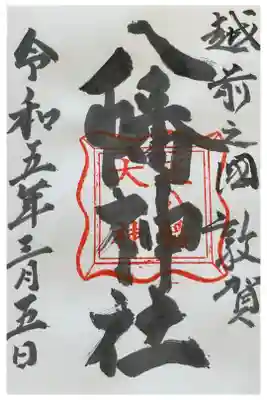 越前之國 敦賀
八幡神社
令和五年三月五日